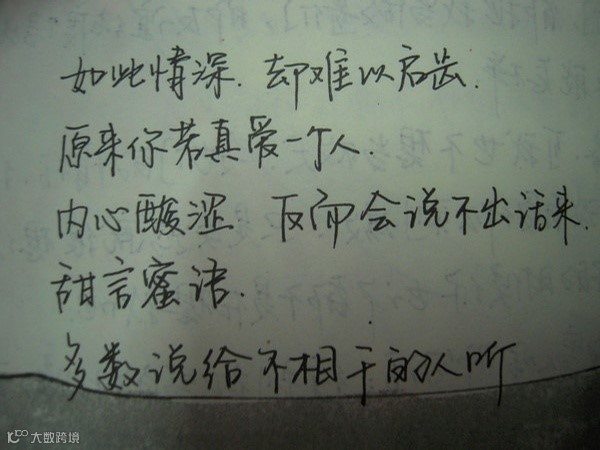 如此情深.却难以启齿.
原来你若真爱一个人.
内心酸涩 反而会说不出话来.
甜言蜜语.
多数说给不相干的人听
大数跨境